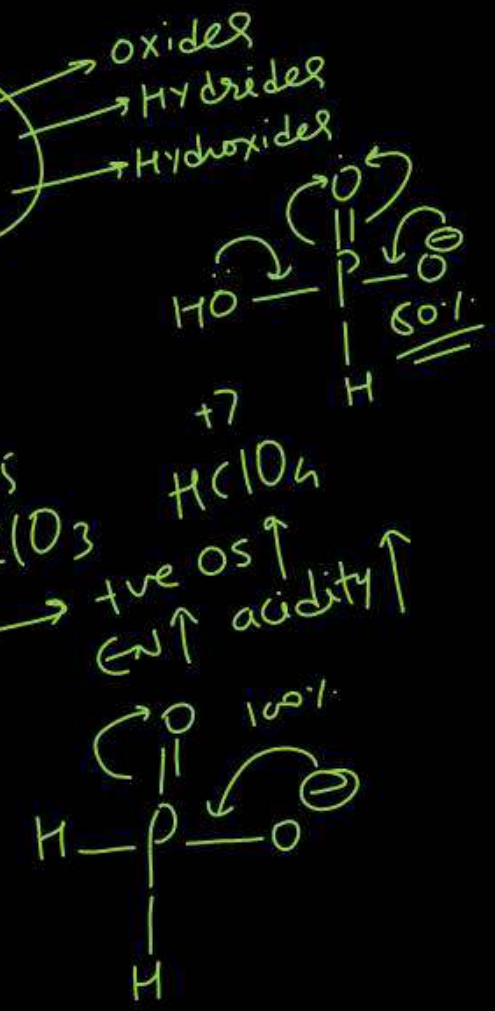 oxides
Hydrides
Hydroxides
O
HO P O ⊖
60%
H
+7
HClO4
lO3
+ve OS ↑
EN ↑ acidity ↑
O 100%
H P O ⊖
H